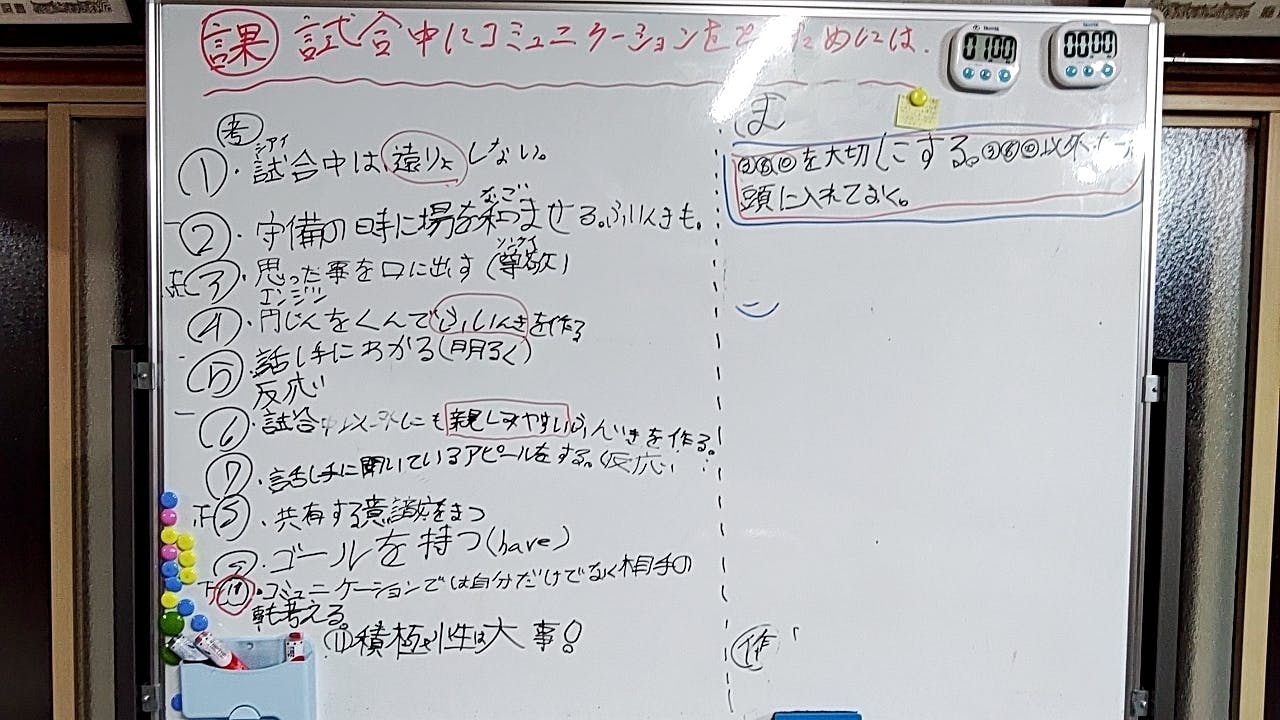 課 試合中にコミュニケーションをとためには.
01:00
00:00
考
シアイ
① ・試合中は、遠りょしない。
なご
② ・守備の時に場を和ませる。ふいんきも。
ソンケイ
③ ・思った事を口に出す(尊敬)
エンジン
④ ・円じんをくんでふいんきを作る
⑤ ・話し手にあかる(明るく)
反応
⑥ ・試合中以外にも親しみやすいふんいきを作る。
⑦ ・話し手に聞いているアピールをする。(反応)
⑧ ・共有する意識をもつ
⑨ ・ゴールを持つ(have)
⑩ ・コミュニケーションでは自分だけでなく相手の
事も考える。
⑪積極性は大事!
ま
を大切にする。以外
頭に入れておく。
作